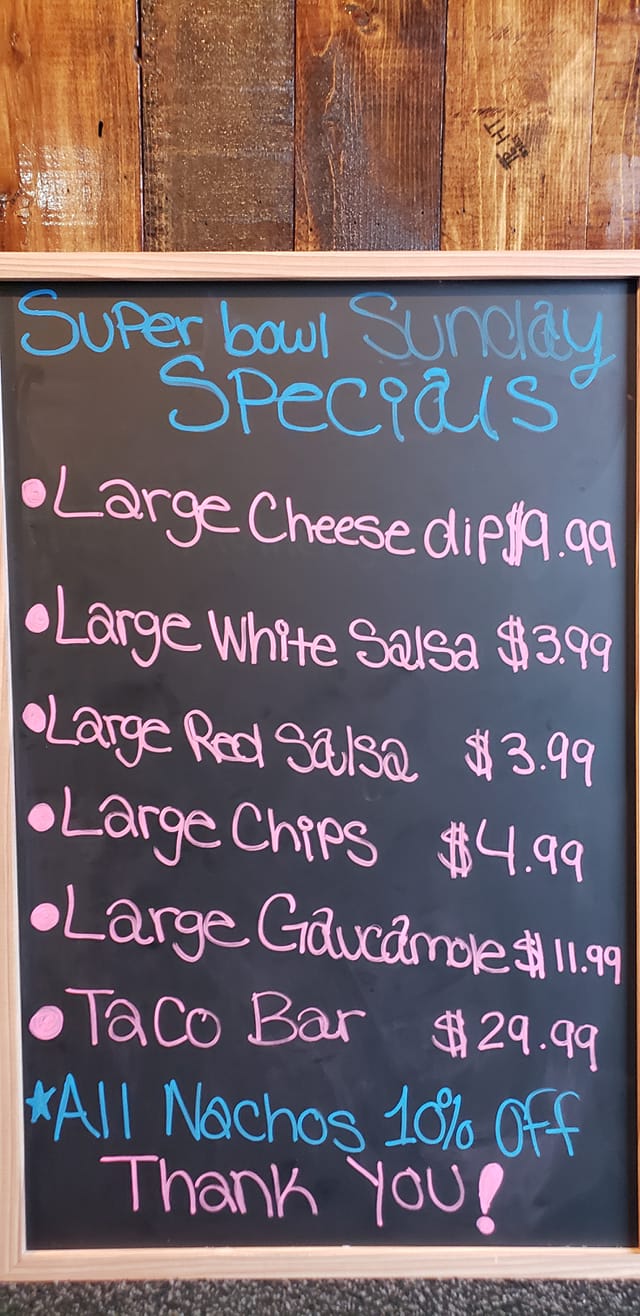 Super bowl Sunday
Specials
• Large Cheese dip $9.99
• Large White Salsa $3.99
• Large Red Salsa $3.99
• Large Chips $4.99
• Large Gaucamole $11.99
• Taco Bar $29.99
★All Nachos 10% Off
Thank You!